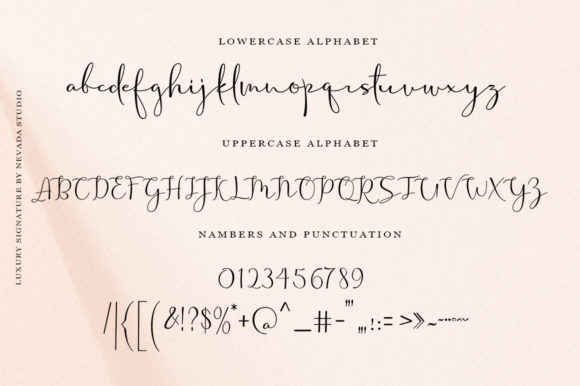 LOWERCASE ALPHABET
abcdefghijklmnopqrstuvwxyz
UPPERCASE ALPHABET
ABCDEFGHIJKLMNOPQRSTUVWXYZ
NAMBERS AND PUNCTUATION
0123456789
/|{[(&!?$%*+@^_#-''',,,!:=>»~-
LUXURY SIGNATURE BY NEVADA STUDIO